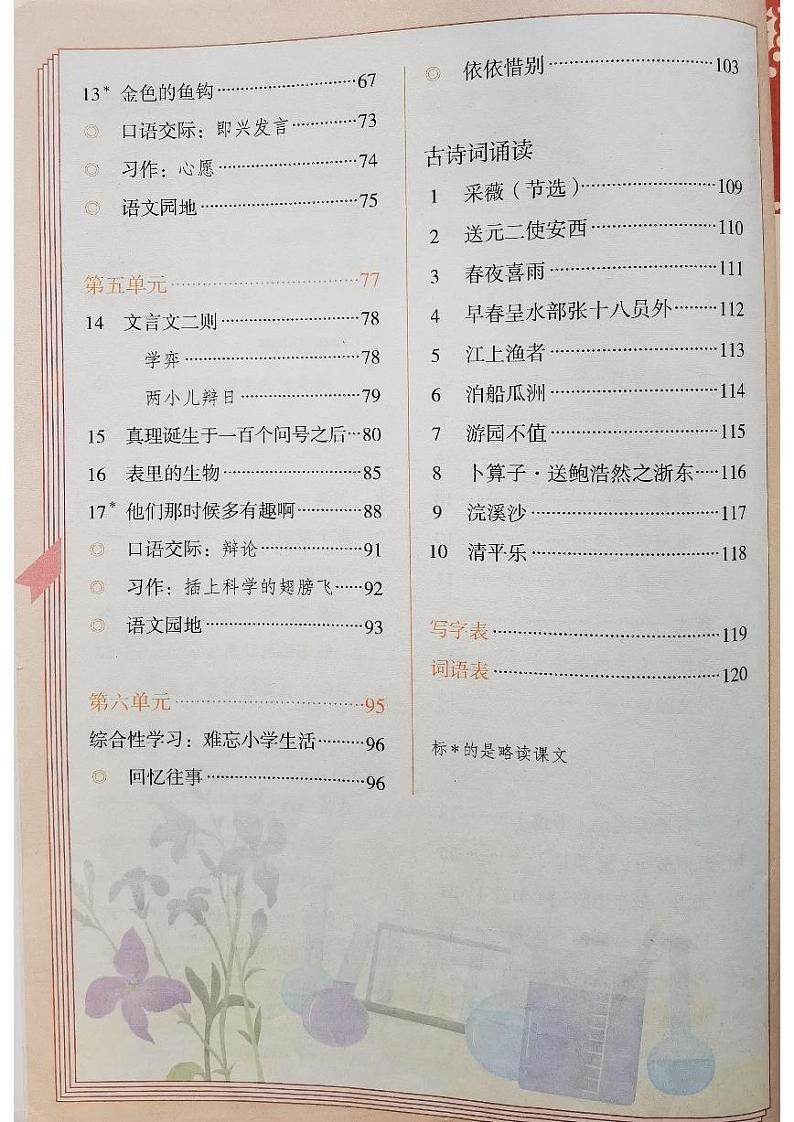 13* 金色的鱼钩……67
◎ 口语交际：即兴发言……73
◎ 习作：心愿……74
◎ 语文园地……75
第五单元……77
14 文言文二则……78
学弈……78
两小儿辩日……79
15 真理诞生于一百个问号之后…80
16 表里的生物……85
17* 他们那时候多有趣啊……88
◎ 口语交际：辩论……91
◎ 习作：插上科学的翅膀飞……92
◎ 语文园地……93
第六单元……95
综合性学习：难忘小学生活……96
◎ 回忆往事……96
◎ 依依惜别……103
古诗词诵读
1 采薇（节选）……109
2 送元二使安西……110
3 春夜喜雨……111
4 早春呈水部张十八员外……112
5 江上渔者……113
6 泊船瓜洲……114
7 游园不值……115
8 卜算子·送鲍浩然之浙东……116
9 浣溪沙……117
10 清平乐……118
写字表……119
词语表……120
标*的是略读课文